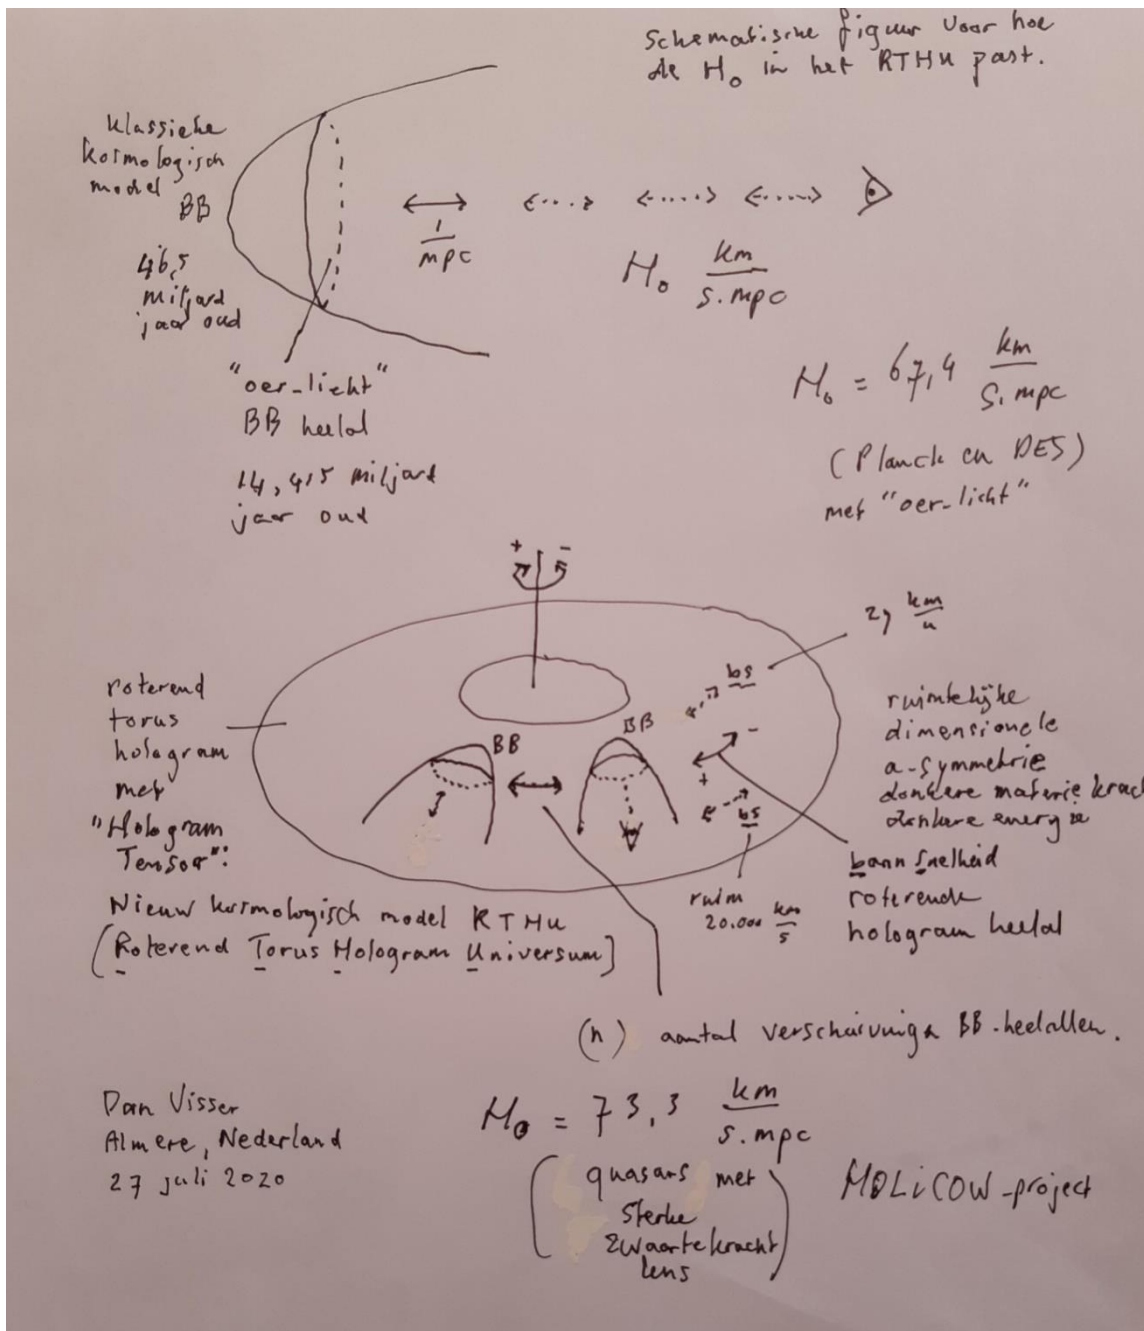 Schematische figuur voor hoe
de H₀ in het RTHU past.
klassieke
kosmologisch
model
BB
46,5
miljard
jaar oud
1/mpc
H₀ km/s.mpc
"oer-licht"
BB heelal
14,415 miljard
jaar oud
H₀ = 67,4 km/s.mpc
(Planck en DES)
met "oer-licht"
+ -
29 km/u
bs
roterend
torus
hologram
met
"Hologram
Tensor":
BB
BB
-
+
bs
ruimtelijke
dimensionele
a-symmetrie
donkere materie krac
donkere energie
baan snelheid
roterende
hologram heelal
ruim
20.000 km/s
Nieuw kosmologisch model RTHU
(Roterend Torus Hologram Universum)
(n) aantal verschuivingen BB-heelallen.
Dan Visser
Almere, Nederland
27 juli 2020
H₀ = 73,3 km/s.mpc
(quasars met
sterke
zwaartekracht
lens)
HOLiCOW-project